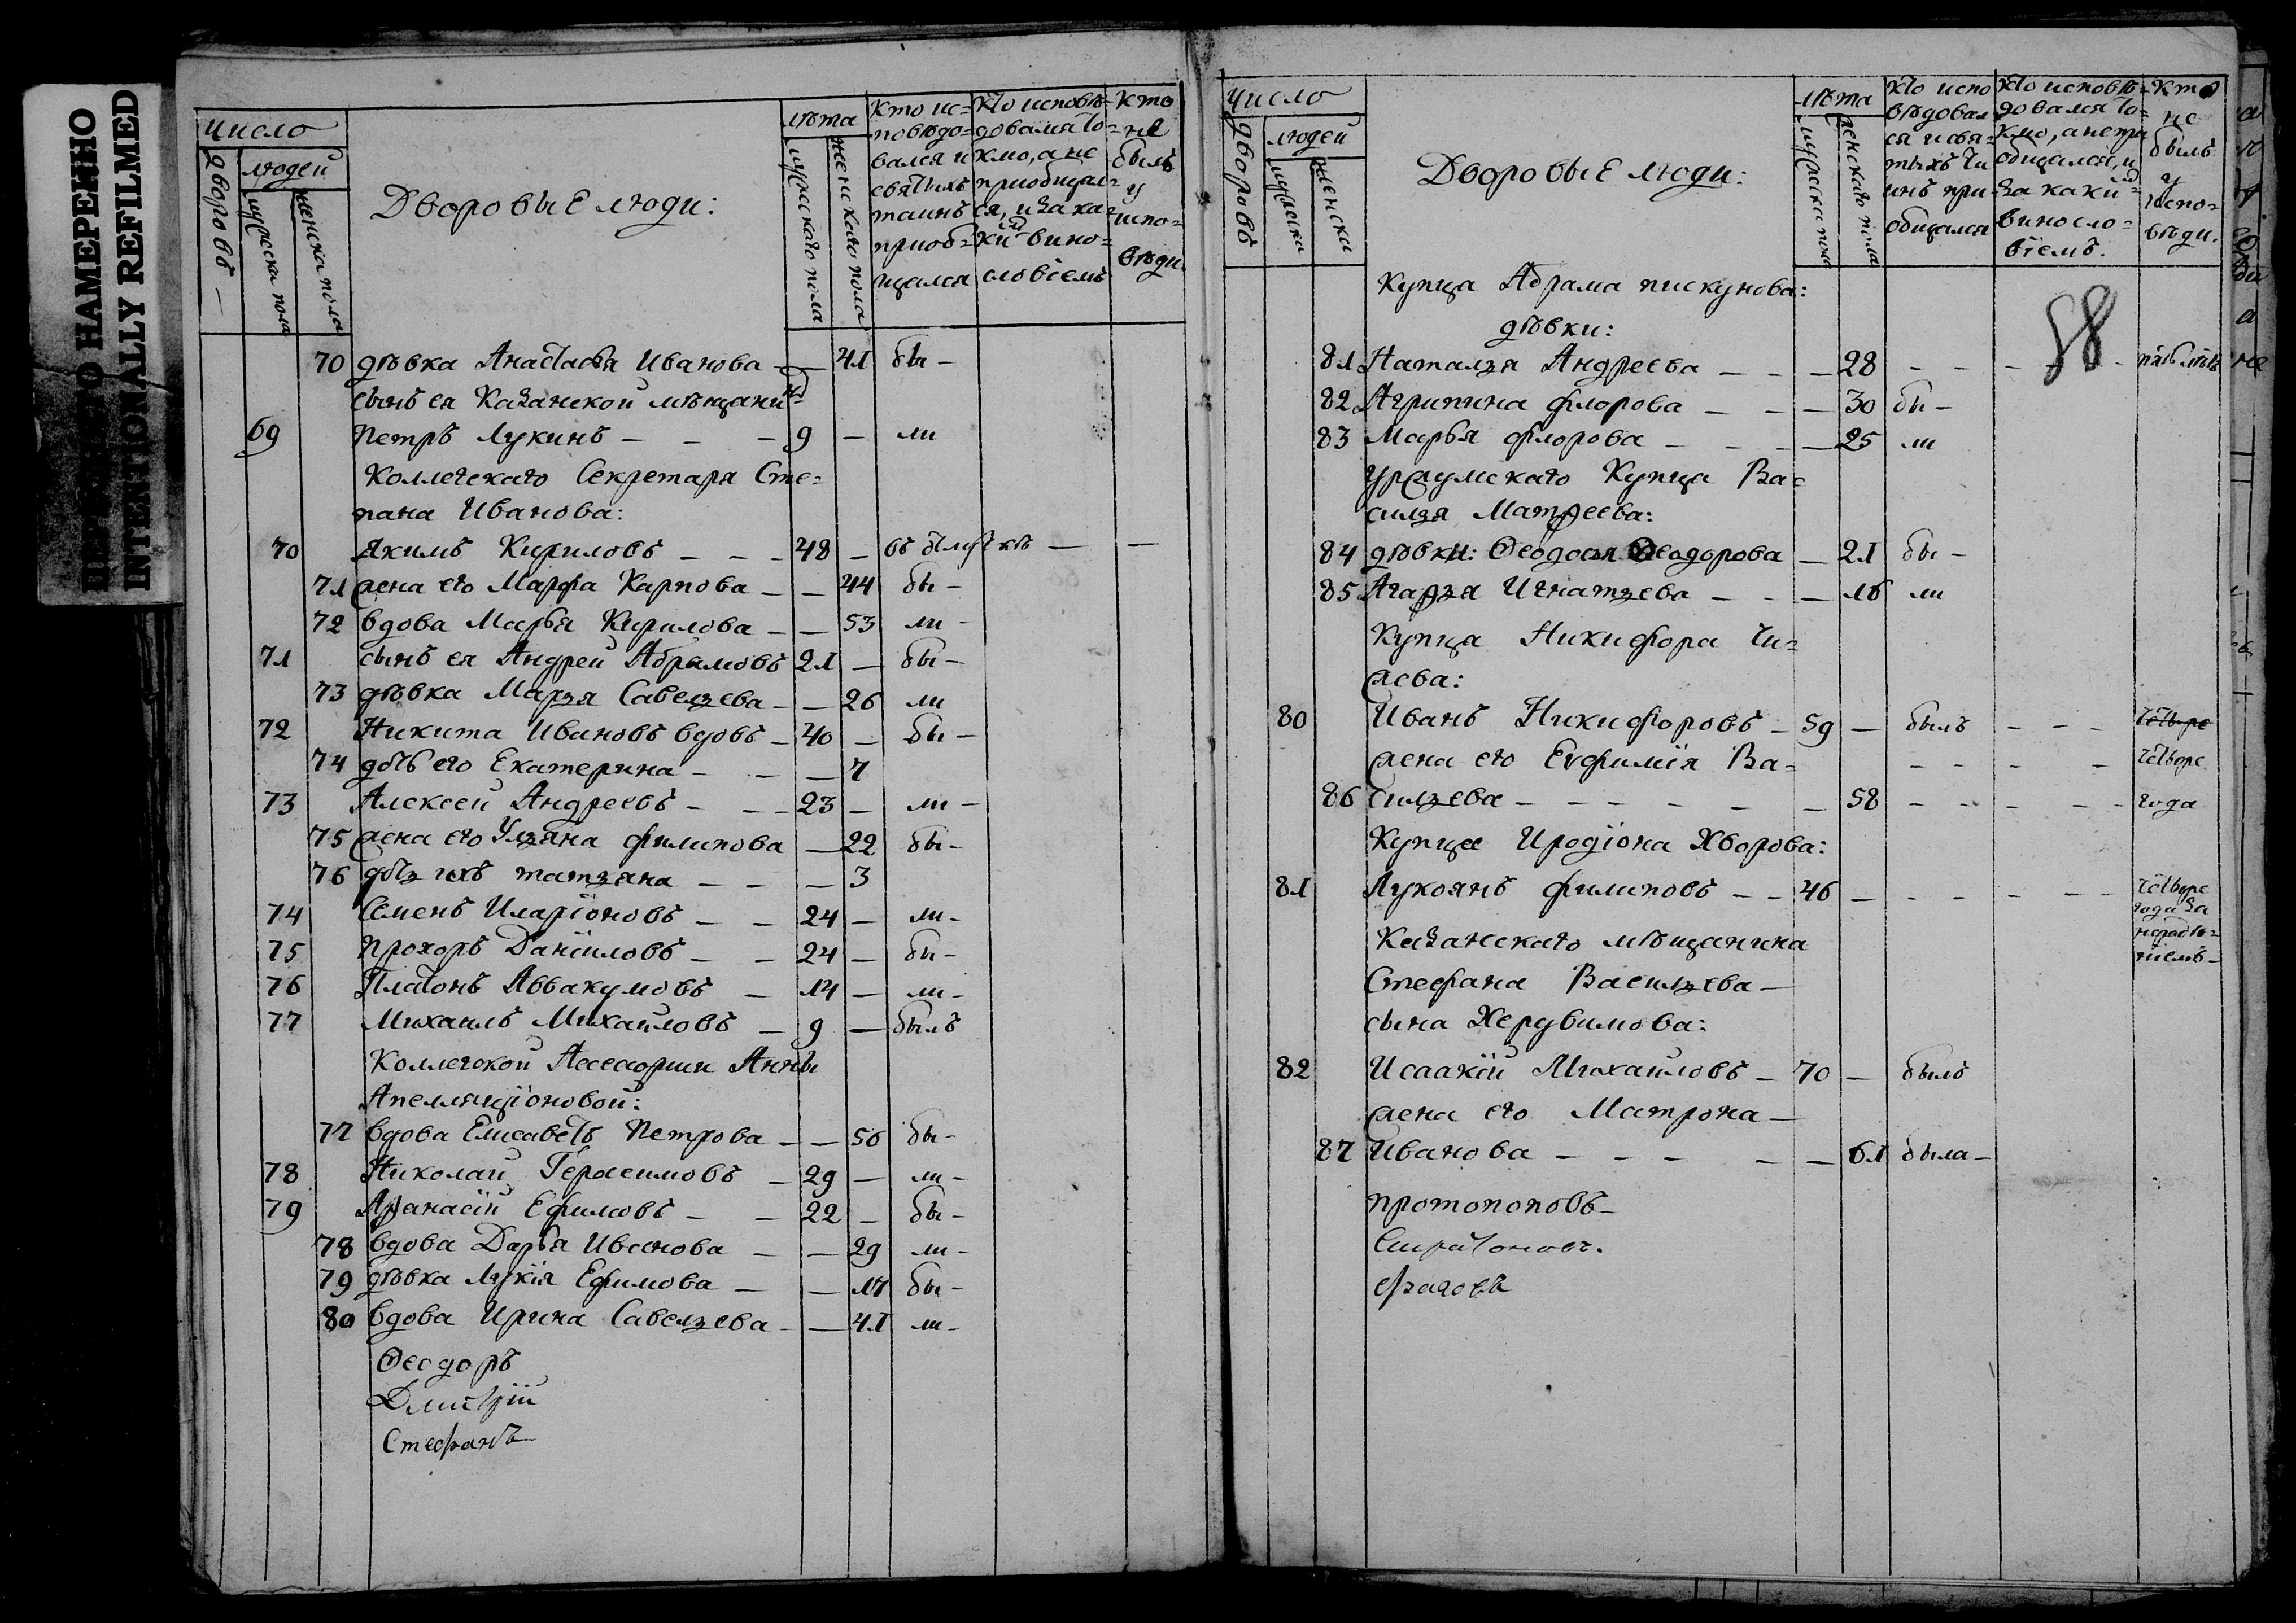 ПЕРЕСНЯТО НАМЕРЕННО
INTENTIONALLY REFILMED
Число
дворовъ
людей
мужеска пола
женска пола
Дворовые люди:
лѣта
мужескаго пола
женскаго пола
Кто ис=
повѣдо=
вался и
святыхъ
таинъ
приоб=
щался
Кто исповѣ=
довался то=
кмо, а не
приобщал=
ся, и за ка=
кимъ вино=
словіемъ
Кто
не
былъ
у
испо=
вѣди
70 дѣвка Анастасья Иванова — — 41 бы —
сынъ ея Казанской мѣщанинъ
69 Петръ Лукинъ — — — 9 — ли
Коллегскаго Секретаря Сте=
пана Иванова:
70 Якимъ Кириловъ — — — 48 — въ —
71 жена его Марфа Карпова — — 44 бы —
72 вдова Марья Кирилова — — 53 ли —
71 сынъ ея Андрей Абрамовъ 21 — бы —
73 дѣвка Марья Савельева — — 26 ли
72 Никита Ивановъ вдовъ — 40 — бы —
74 дочь его Екатерина — — — 7
73 Алексей Андреевъ — — — 23 — ли —
75 жена его Ульяна Филипова — 22 бы —
76 дочь ихъ Татьяна — — — 3
74 Семенъ Иларіоновъ — — 24 — ли —
75 Прохоръ Даніиловъ — — 24 — бы —
76 Платонъ Аввакумовъ — 14 — ли —
77 Михаилъ Михайловъ — 9 — былъ
Коллегской Асесорши Анны
Апелляціоновой:
77 вдова Елисаветъ Петрова — — 56 бы —
78 Николай Герасимовъ — 29 — ли —
79 Афанасій Ефимовъ — — 22 — бы —
78 вдова Дарья Иванова — — 29 ли —
79 дѣвка Лукія Ефимова — — 17 бы —
80 вдова Ирина Савельева — — 41 ли —
Ѳеодоръ
Дмитрій
Стефанъ
Число
дворовъ
людей
мужеска
женска
Дворовые люди:
лѣта
мужеска пола
женскаго пола
Кто испо
вѣдовал
ся и свя=
тыхъ та
инъ при=
общался
Кто исповѣ=
довался то=
кмо, а не при
общался, и
за какимъ
виносло=
віемъ.
Кто
не
былъ
у
испо=
вѣди.
88
Купца Абрама Пискунова:
дѣвки:
81 Наталья Андреева — — — 28 — — —
82 Агрипина Флорова — — — 30 бы —
83 Марья Флорова — — — 25 ли
Уржумскаго Купца Ва=
силья Матвеева:
84 дѣвки: Ѳеодосья Ѳеодорова — 21 бы —
85 Агафья Игнатьева — — — 16 ли
Купца Никифора Чи=
жева:
80 Иванъ Никифоровъ — 59 — былъ — —
жена его Евфимія Ва= — — — — четыре
86 сильева — — — — — — 58 — — — — — года
Купца Иродіона Хворова:
81 Лукоянъ Филиповъ — — 46 — — — — — четыре
года за
нерадѣ=
ніемъ —
Казанскаго мѣщанина
Стефана Васильева —
сына Херувимова:
82 Исаакій Михайловъ — 70 — былъ
жена его Матрона —
87 Иванова — — — — — 61 была —
Протопоповъ —